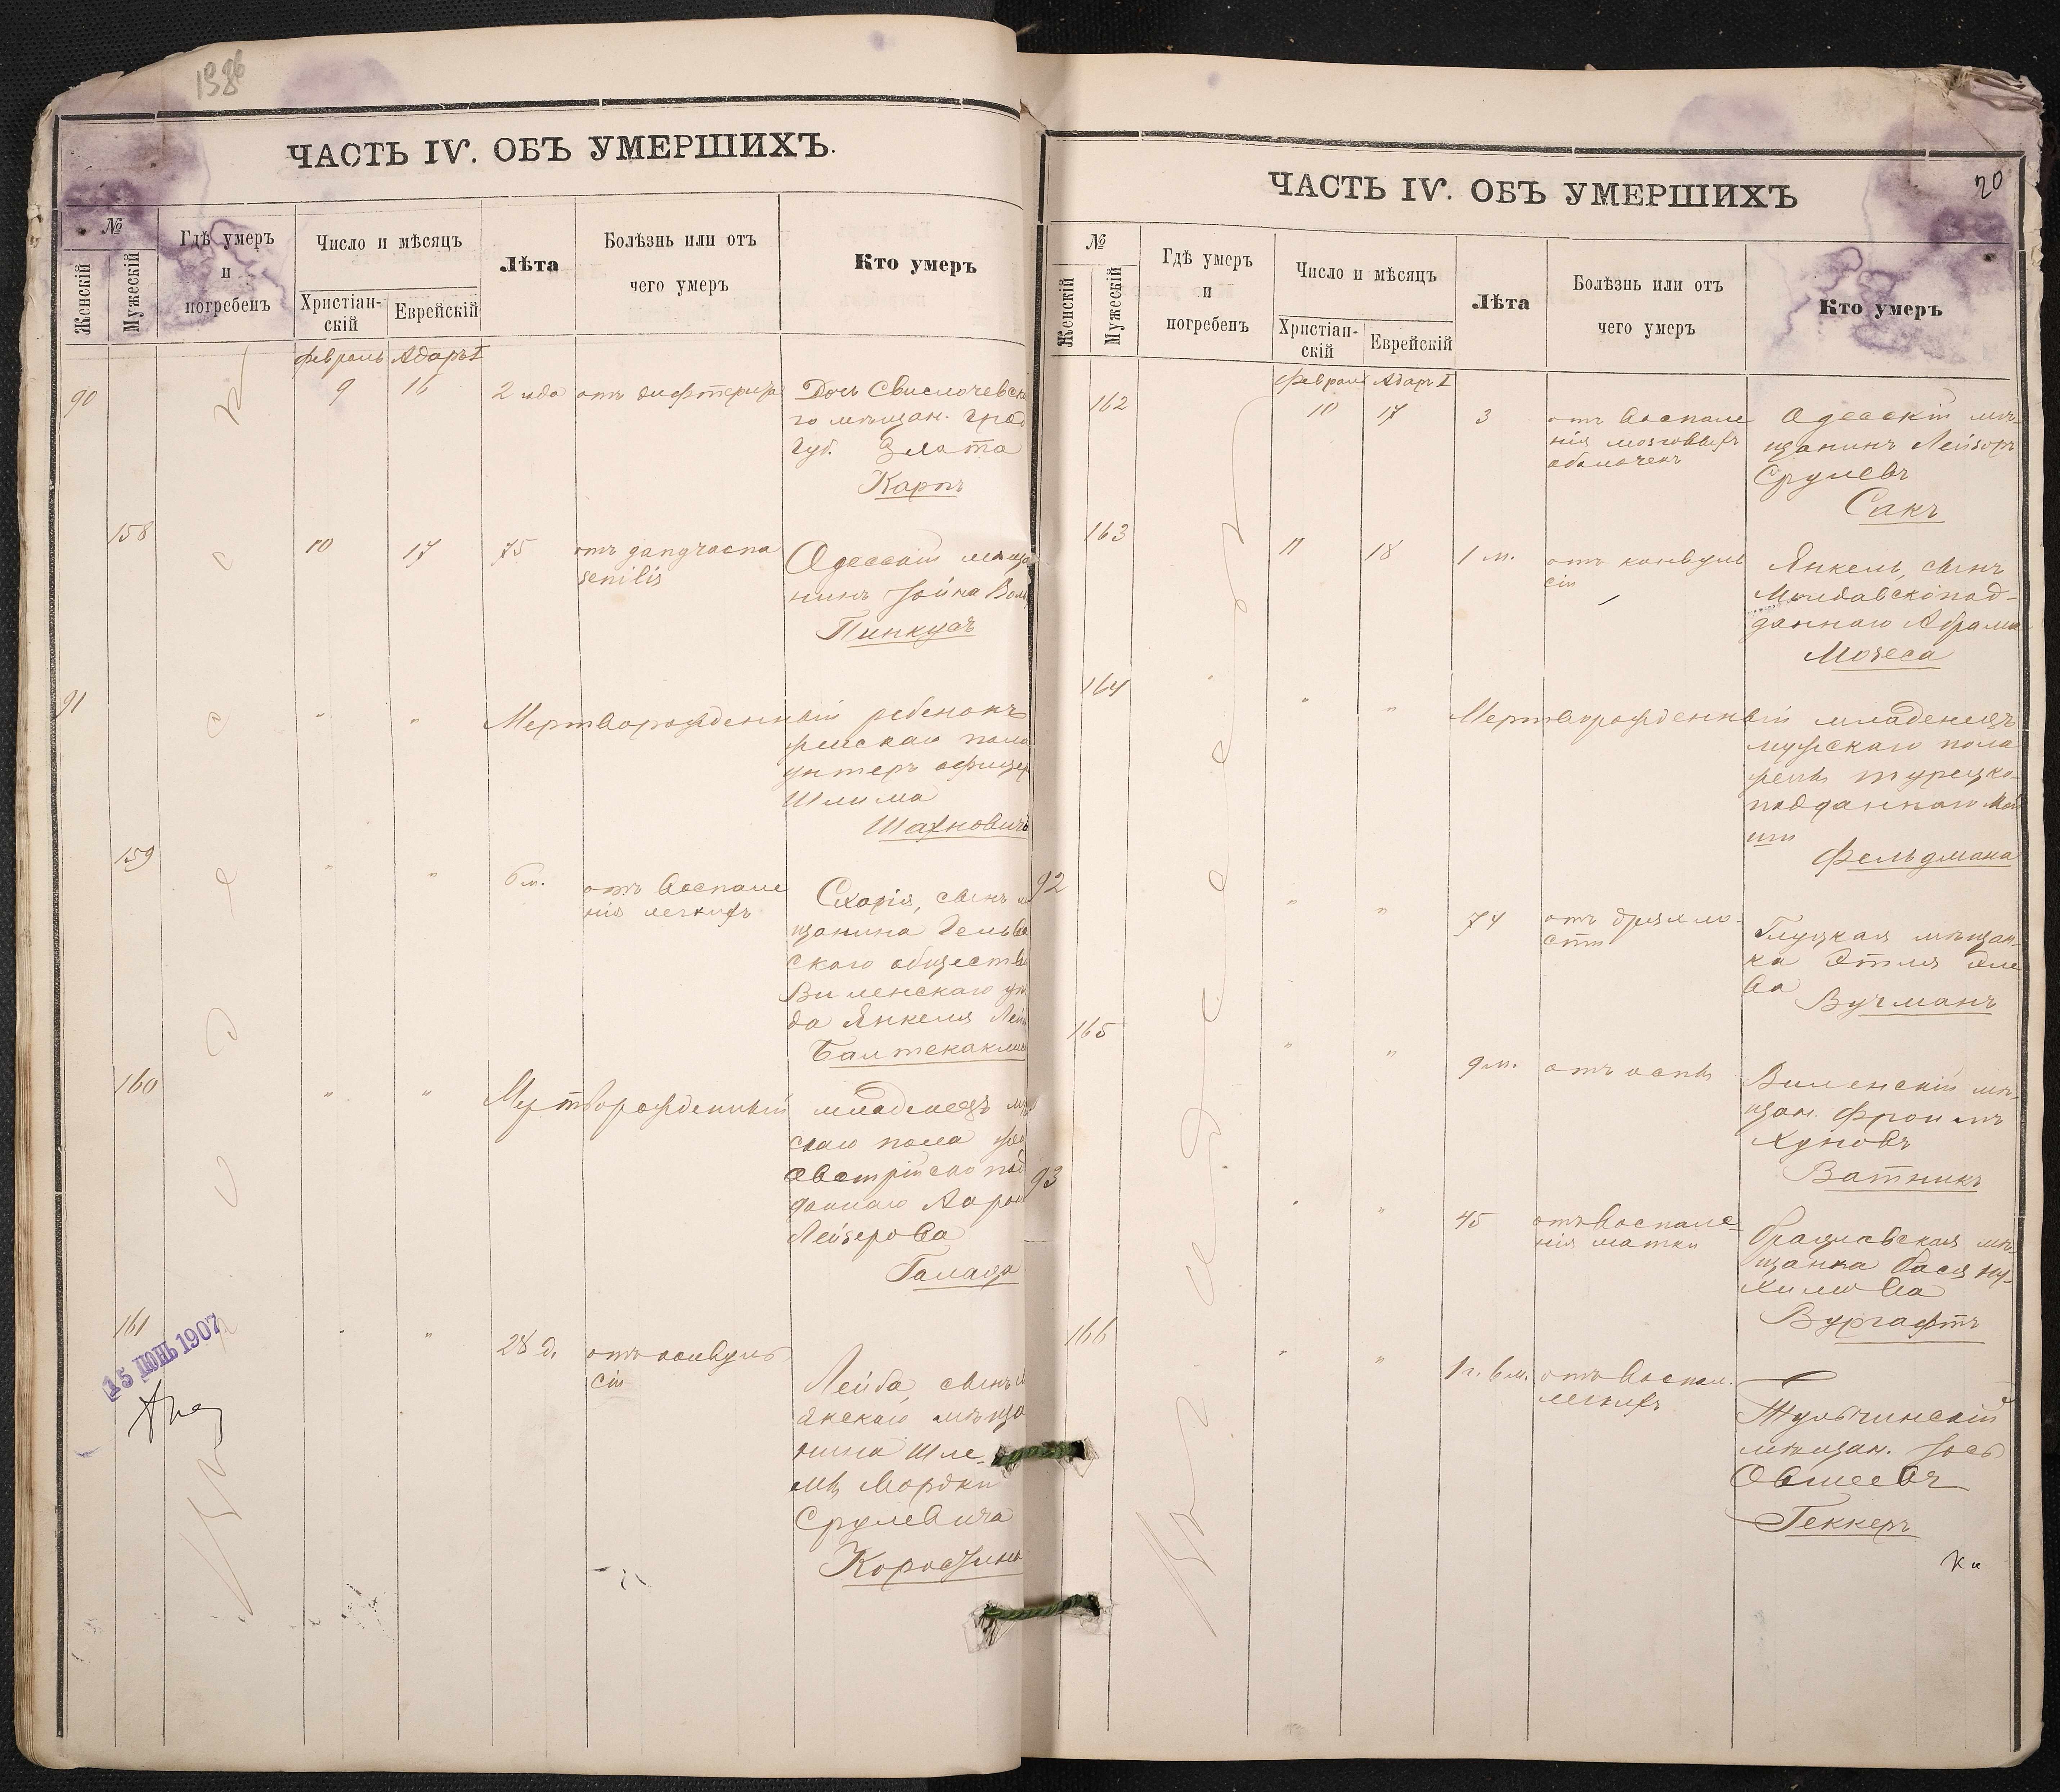 1386
ЧАСТЬ IV. ОБЪ УМЕРШИХЪ.
№
Женскій
Мужескій
Гдѣ умеръ
и
погребенъ
Число и мѣсяцъ
Христіан-
скій
Еврейскій
Лѣта
Болѣзнь или отъ
чего умеръ
Кто умеръ
Февраль Адаръ I
90
9
16
2 года
отъ дифтерита
Дочь Свислочевска
го мѣщан. Грод
Губ. Злата
Карпъ
158
10
17
75
отъ
senilis
Одесскій мѣща
нинъ Іойна Вол
Пинкусъ
91
"
"
Мертворожденный ребенокъ
женскаго пола
унтеръ офицер
Шлима
Шахновичъ
159
"
"
6 м.
отъ воспале
нія легкихъ
Схарія, сынъ м
щанина Гельва
скаго обществ
Виленскаго уѣ
да Янкеля Лей
160
"
"
Мертворожденный младенецъ муж
скаго пола же
Австрійско под
даннаго Аарон
Лейзерова
Галаца
161
"
"
28 д.
отъ конвуль
сіи
Лейба, сынъ
мѣща
нина Шле-
мы Мордки
Срулевича
15 ІЮНЬ 1907
Одесса
20
ЧАСТЬ IV. ОБЪ УМЕРШИХЪ
№
Женскій
Мужескій
Гдѣ умеръ
и
погребенъ
Число и мѣсяцъ
Христіан-
скій
Еврейскій
Лѣта
Болѣзнь или отъ
чего умеръ
Кто умеръ
Февраль Адаръ I
162
10
17
3
отъ воспале
нія мозговыхъ
оболочекъ
Одесскій мѣ-
щанинъ Лейзоръ
Срулевъ
Сакъ
163
11
18
1 м.
отъ конвуль
сіи
Янкель, сынъ
Молдавскопод-
даннаго Абрама
Мозеса
164
"
"
Мертворожденный младенецъ
мужскаго пола
жены турецко-
подданнаго Мой
ши
Фельдмана
92
"
"
74
отъ дряхло-
сти
Глуцкая мѣщан-
ка Этля Эле
ва
Вугманъ
165
"
"
9 м.
отъ оспы
Виленскій мѣ-
щан. Фроимъ
Хуновъ
Ватникъ
93
"
"
45
отъ воспале-
нія матки
Брацлавская мѣ-
щанка Бася Ну-
химова
Вургафтъ
166
"
"
1 г. 6 м.
отъ воспал.
легкихъ
Тульчинскій
мѣщан. Іось
Овшеевъ
Геккеръ